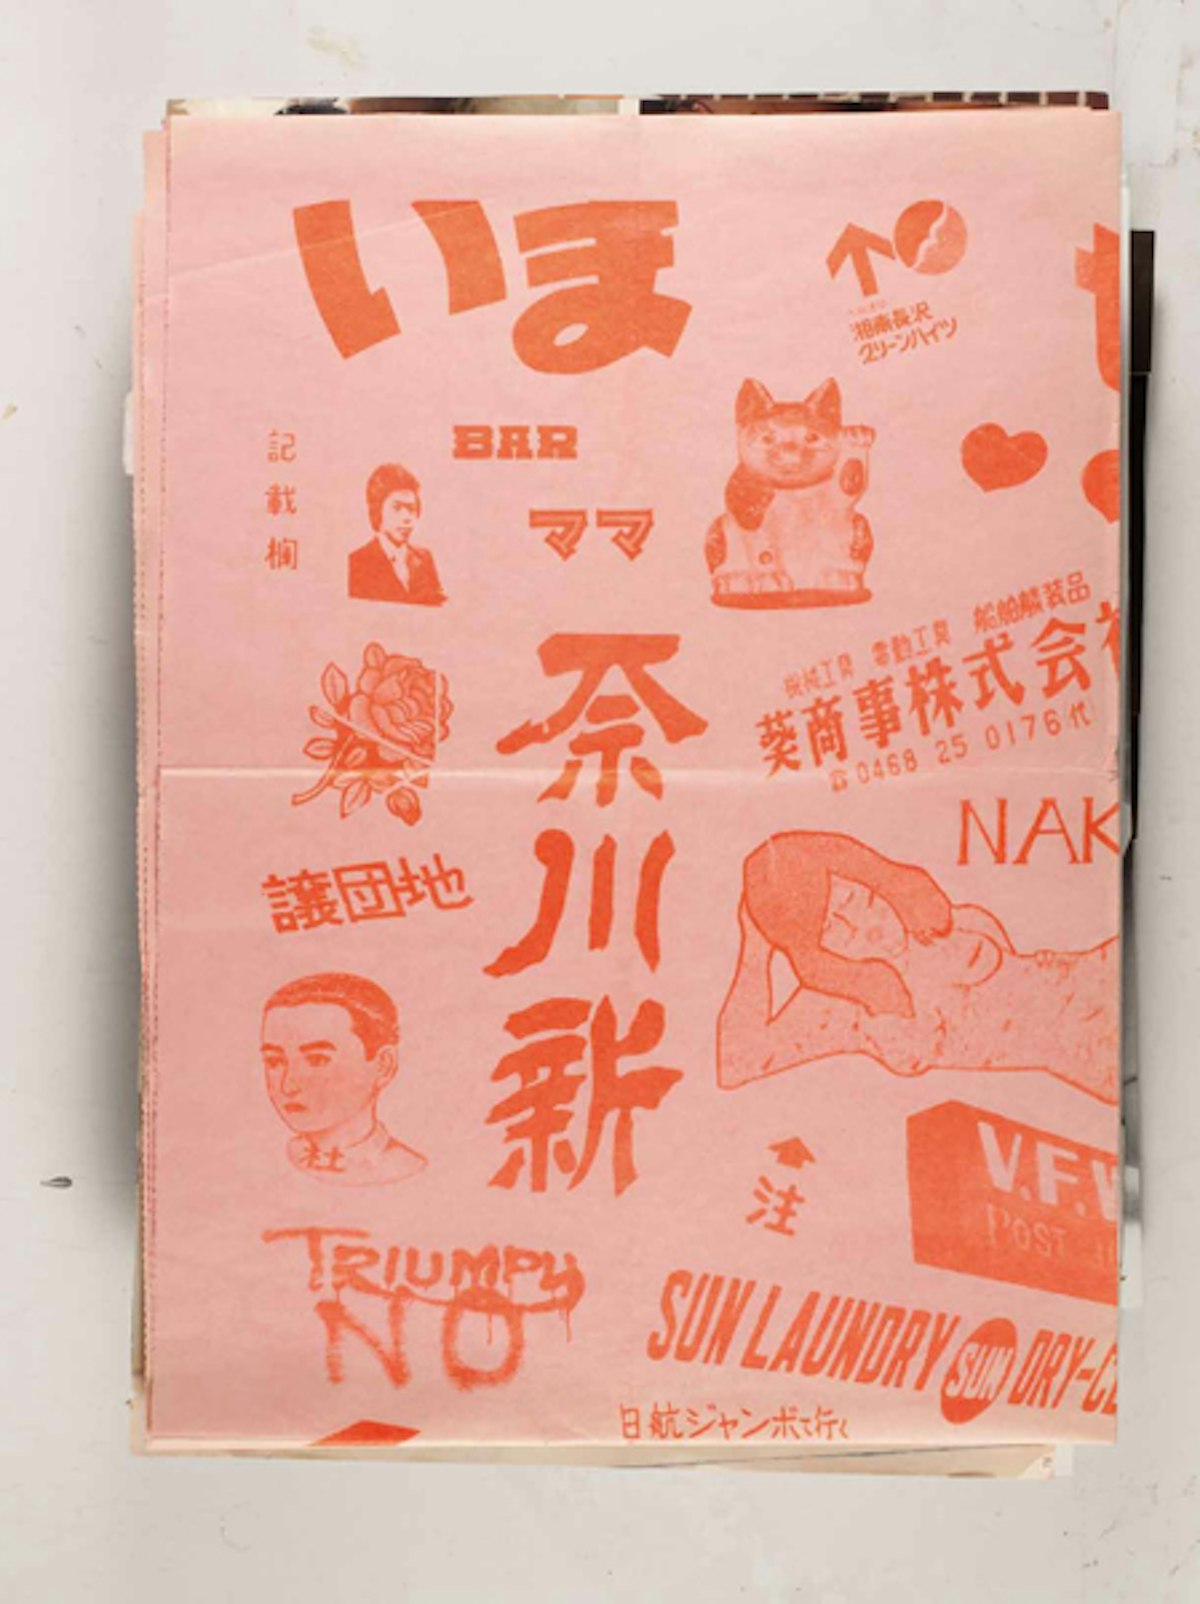 いま
湘南長沢
グリーンハイツ
記載欄
BAR
ママ
機械工具 電動工具 船舶艤装品
葵商事株式会社
☎0468 25 0176(代)
奈川新
NAK
譲団地
社
V.F.W
POST
注
TRIUMPY
NO
SUN LAUNDRY SUN DRY-CL
日航ジャンボで行く